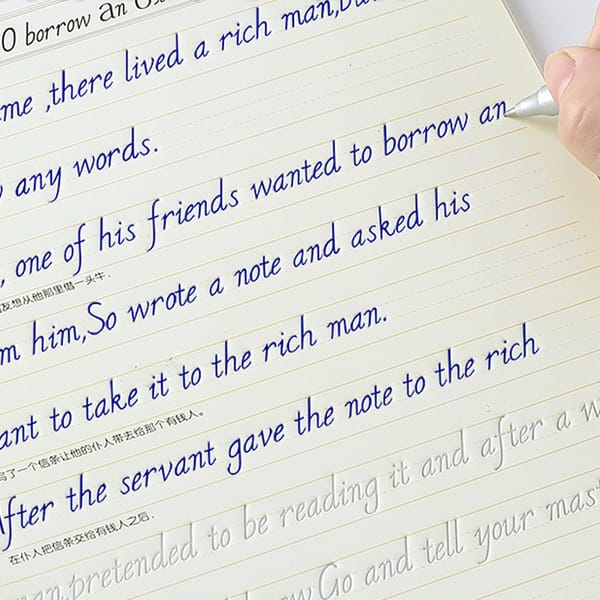 O borrow an
me ,there lived a rich man,
any words.
, one of his friends wanted to borrow an
友想从他那里借一头牛.
m him,So wrote a note and asked his
ant to take it to the rich man.
写了一个信条让他的仆人带去给那个有钱人。
After the servant gave the note to the rich
在仆人把信条交给有钱人之后,
man,pretended to be reading it and after a
Go and tell your